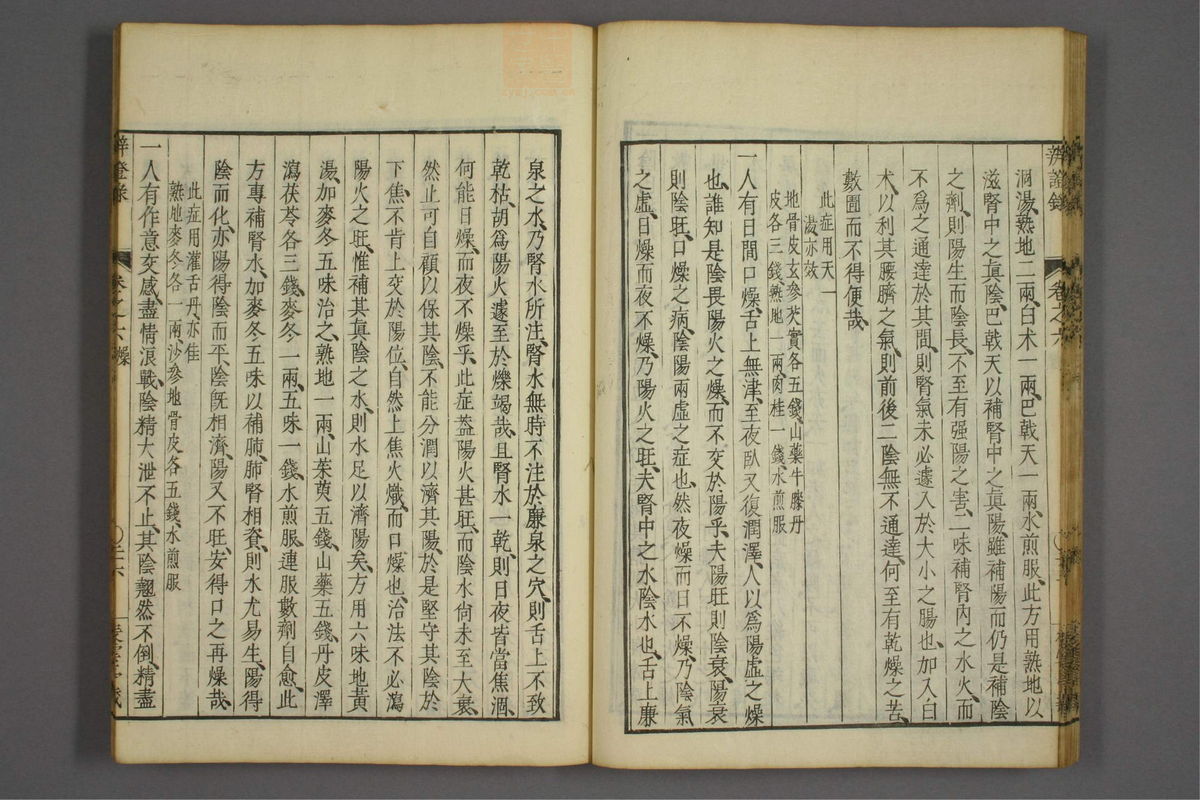 洞湯熟地二兩白术一兩巴戟天一兩水煎服此方用熟地以
滋腎中之眞陰巴戟天以補腎中之眞陽雖補陽而仍是補陰
之劑則陽生而陰長不至有强陽之害二味補腎內之水火而
不爲之通達於其間則腎氣未必遽入於大小之腸也加入白
术以利其腰臍之氣則前後二陰無不通達何至有乾燥之苦
數圊而不得便哉
此症用天一
湯亦效
地骨皮玄參芡實各五錢山藥牛膝丹
皮各三錢熟地一兩肉桂一錢水煎服
一人有日間口燥舌上無津至夜臥又復潤澤人以爲陽虛之燥
也誰知是陰畏陽火之燥而不交於陽乎夫陽旺則陰衰陽衰
則陰旺口燥之病陰陽兩虛之症也然夜燥而日不燥乃陰氣
之虛日燥而夜不燥乃陽火之旺夫腎中之水陰水也舌上廉
辨證錄
卷之六
泉之水乃腎水所注腎水無時不注於廉泉之穴則舌上不致
乾枯胡爲陽火遽至於爍竭哉且腎水一乾則日夜皆當焦涸
何能日燥而夜不燥乎此症葢陽火甚旺而陰水尙未至大衰
然止可自顧以保其陰不能分潤以濟其陽於是堅守其陰於
下焦不肯上交於陽位自然上焦火熾而口燥也治法不必瀉
陽火之旺惟補其眞陰之水則水足以濟陽矣方用六味地黃
湯加麥冬五味治之熟地一兩山茱萸五錢山藥五錢丹皮澤
瀉茯苓各三錢麥冬一兩五味一錢水煎服連服數劑自愈此
方專補腎水加麥冬五味以補肺肺腎相資則水尤易生陽得
陰而化亦陽得陰而平陰旣相濟陽又不旺安得口之再燥哉
此症用灌舌丹亦佳
熟地麥冬各一兩沙參地骨皮各五錢水煎服
一人有作意交感盡情浪戰陰精大泄不止其陰翹然不倒精盡
辨證錄
卷之六 燥